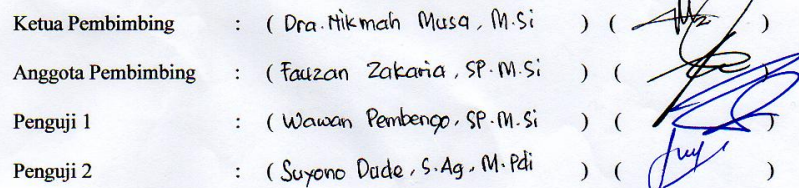 Ketua Pembimbing : ( Dra. Nikmah Musa, M.Si ) ( )
Anggota Pembimbing : ( Fauzan Zakaria, SP. M.Si ) ( )
Penguji 1 : ( Wawan Pembengo, SP. M.Si ) ( )
Penguji 2 : ( Suyono Dude, S.Ag, M.Pdi ) ( )